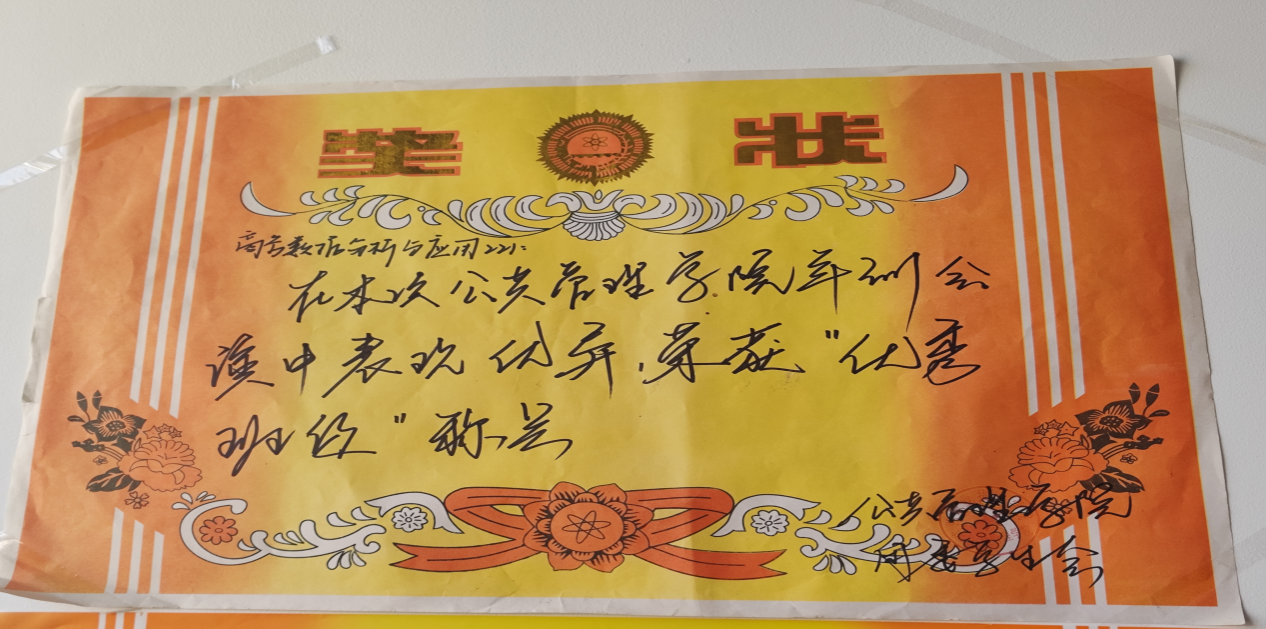 奖状
商务数据分析与应用221:
在本次公共管理学院军训会
演中表现优异,荣获"优秀
班级"称号
公共管理学院
团委学生会